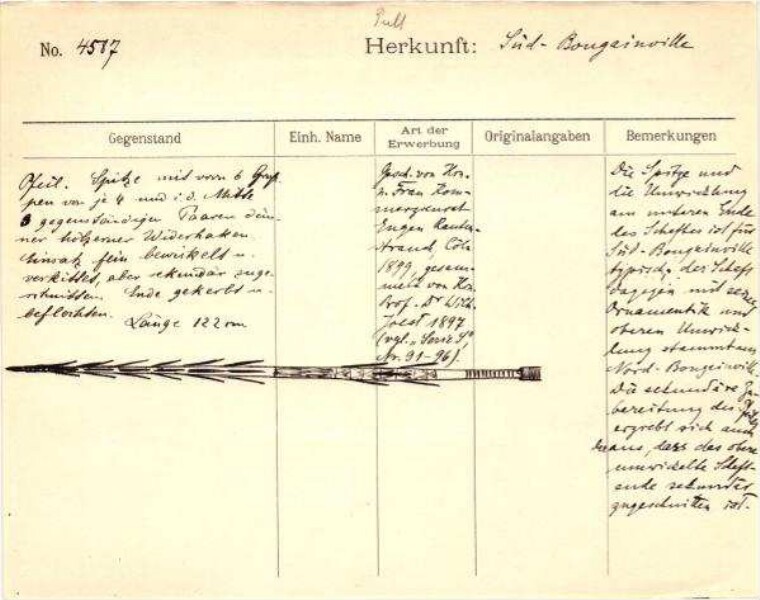 Süll
No. 4587 Herkunft: Süd-Bougainville
Gegenstand
Einh. Name
Art der
Erwerbung
Originalangaben
Bemerkungen
Pfeil. Spitze mit vorn 6 Grup-
pen von je 4 und i. d. Mitte
3 gegenständigen Paaren dün-
ner hölzerner Widerhaken.
Einsatz fein bewickelt u.
verkittet, aber sekundär zuge-
schnitten. Ende gekerbt u.
beflochten.
Länge 122 cm
Gesch. von Hrn.
u. Frau Kom-
merzienrat
Eugen Rauten-
strauch, Cöln
1899, gesam-
melt von Hrn.
Prof. Dr. Wilh.
Joest 1897
(vgl. "Serie S",
Nr. 91-96).
Die Spitze und
die Umwicklung
am unteren Ende
des Schaftes ist für
Süd-Bougainville
typisch, der Schaft
dagegen mit seiner
Ornamentik und
oberen Umwick-
lung stammt aus
Nord-Bougainville.
Die sekundäre Zu-
bereitung des Pfeils
ergibt sich auch
daraus, dass das obere
umwickelte Schaft-
ende sekundär
zugeschnitten ist.